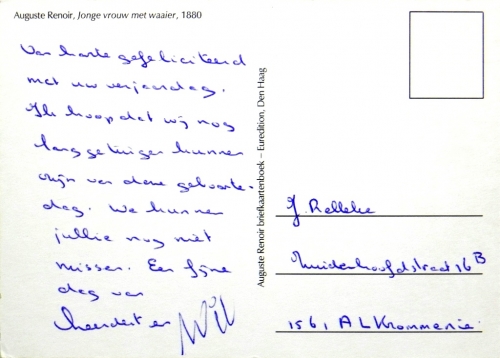 Auguste Renoir, Jonge vrouw met waaier, 1880
Van harte gefeliciteerd
met uw verjaardag.
Ik hoop dat wij nog
lang getuigen kunnen
zijn van deze geboorte-
dag. We kunnen
jullie nog niet
missen. Een fijne
dag van
en Wil
Auguste Renoir briefkaartenboek – Euredition, Den Haag
J. Relleke
Muiderhoofdstraat 16 B
1561 AL Krommenie